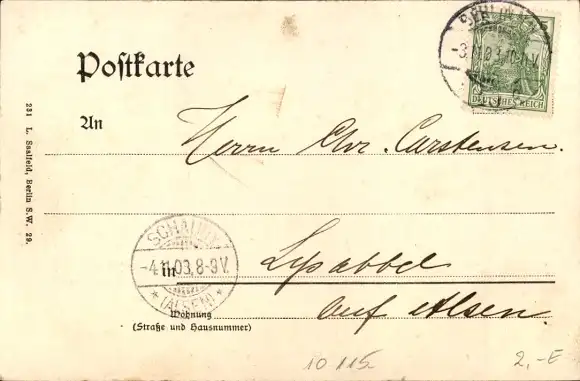 BERLIN
-3.11.03.
DEUTSCHES REICH
Postkarte
An
Herrn Chr. Carstensen.
231 L. Saalfeld, Berlin S.W. 29.
SCHAUBY
-4.11.03. 8-9V.
* (ALSEN) *
in
Lysabbel
auf Alsen.
Wohnung
(Straße und Hausnummer)
10115
2,-E